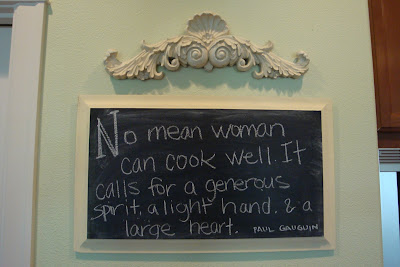 No mean woman
can cook well. It
calls for a generous
spirit, a light hand. & a
large heart. PAUL GAUGUIN